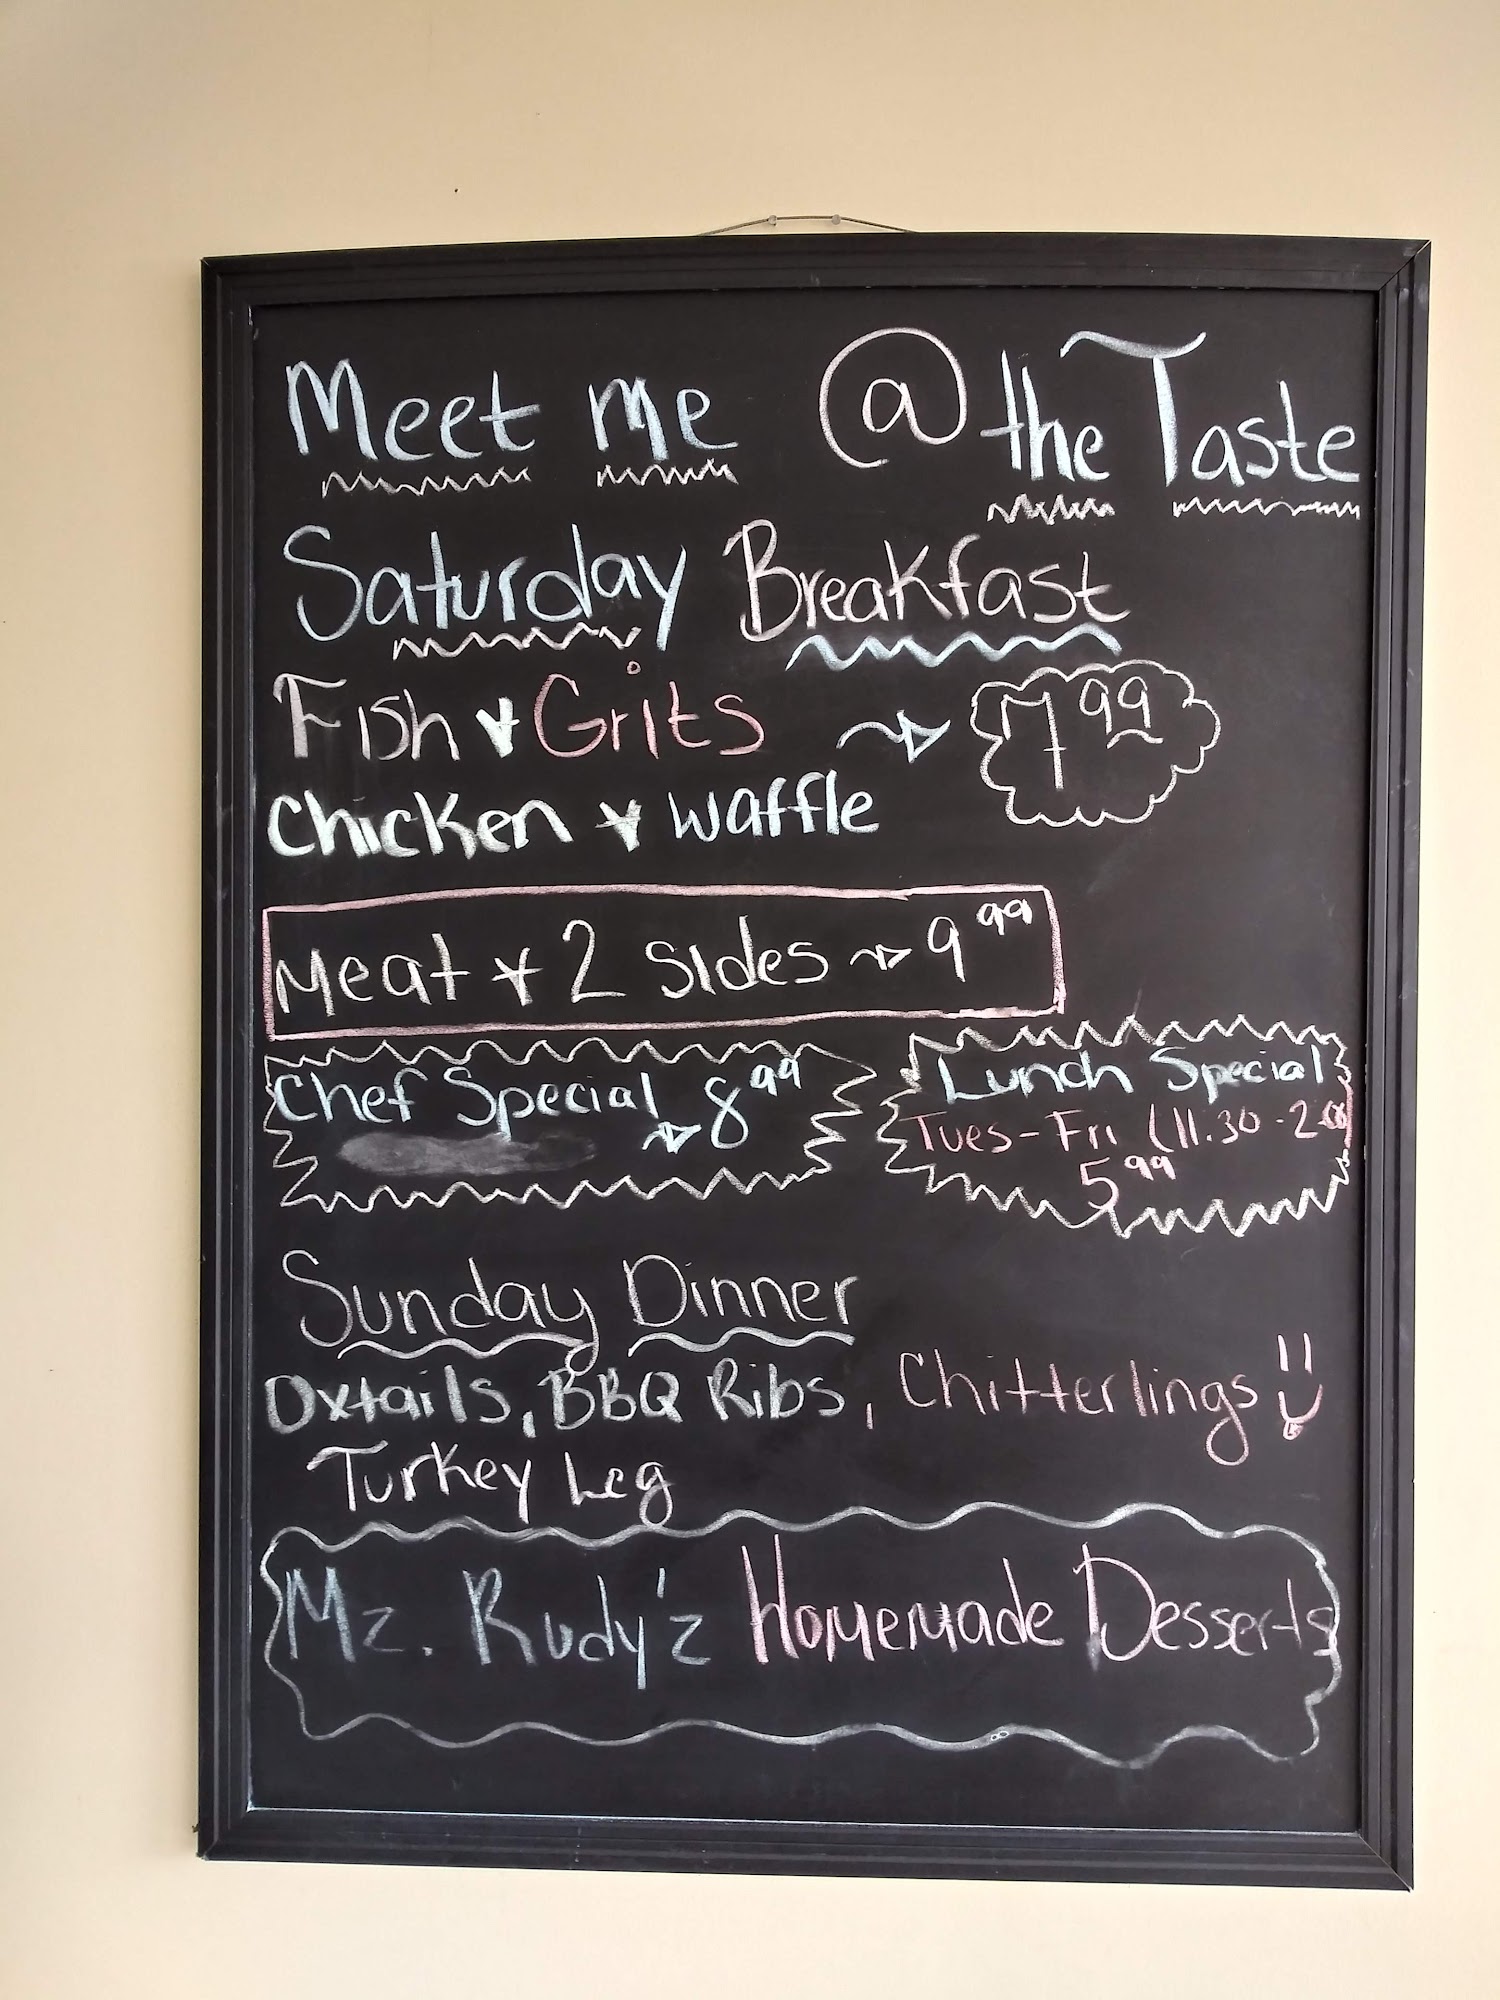 Meet me @ the Taste
Saturday Breakfast
Fish & Grits → 7.99
Chicken & Waffle
Meat & 2 Sides → 9.99
Chef Special → 8.99
Lunch Special
Tues-Fri (11:30-2:00)
5.99
Sunday Dinner
Oxtails, BBQ Ribs, Chitterlings
Turkey Leg
Mz. Rudy'z Homemade Desserts